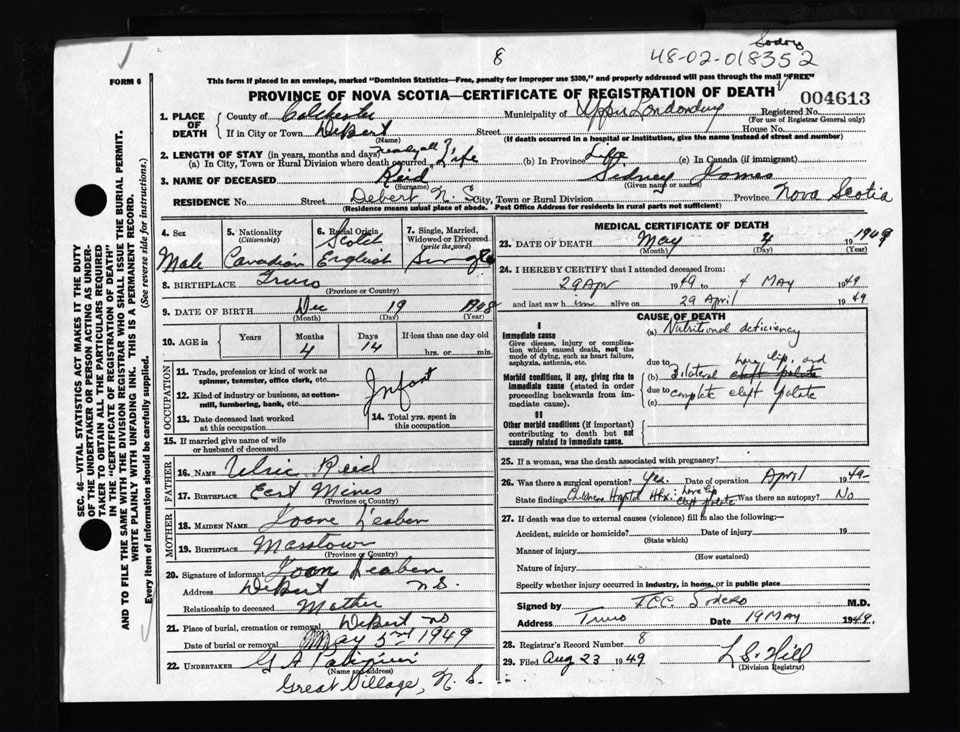 8
Sodero
48-02-018352
FORM 6
This form if placed in an envelope, marked "Dominion Statistics—Free, penalty for improper use $300," and properly addressed will pass through the mail "FREE"
PROVINCE OF NOVA SCOTIA—CERTIFICATE OF REGISTRATION OF DEATH
004613
1. PLACE OF DEATH
County of Colchester Municipality of Upper Londonderry Registered No.
(For use of Registrar General only)
If in City or Town Debert Street House No.
(Name) (If death occurred in a hospital or institution, give the name instead of street and number)
2. LENGTH OF STAY (in years, months and days) nearly all ?
(a) In City, Town or Rural Division where death occurred Life (b) In Province Life (c) In Canada (if immigrant)
3. NAME OF DECEASED Reid Sidney James
(Surname) (Given name or names)
RESIDENCE No. Street Debert N.S. City, Town or Rural Division Province Nova Scotia
(Residence means usual place of abode. Post Office Address for residents in rural parts not sufficient)
4. Sex
Male
5. Nationality
(Citizenship)
Canadian
6. Racial Origin
Scotch
English
7. Single, Married, Widowed or Divorced
(write the word)
Single
8. BIRTHPLACE Truro
(Province or Country)
9. DATE OF BIRTH Dec 19 1948
(Month) (Day) (Year)
10. AGE in
Years Months Days If less than one day old
4 14 hrs. or min.
OCCUPATION
11. Trade, profession or kind of work as spinner, teamster, office clerk, etc.
12. Kind of industry or business, as cotton-mill, lumbering, bank, etc.
Infant
13. Date deceased last worked at this occupation
14. Total yrs. spent in this occupation
15. If married give name of wife or husband of deceased
FATHER
16. NAME Ulric Reid
17. BIRTHPLACE East Mines
(Province or Country)
MOTHER
18. MAIDEN NAME Joane Leaben
19. BIRTHPLACE Masstown
(Province or Country)
20. Signature of informant Joan Leaben
Address Debert N.S.
Relationship to deceased Mother
21. Place of burial, cremation or removal Debert NS
Date of burial or removal May 5 1949
22. UNDERTAKER G A
(Name and address)
Great Village, N.S.
MEDICAL CERTIFICATE OF DEATH
23. DATE OF DEATH May 4 1949
(Month) (Day) (Year)
24. I HEREBY CERTIFY that I attended deceased from:
29 Apr 1949 to 4 May 1949
and last saw him alive on 29 April 1949
CAUSE OF DEATH
I
Immediate cause
Give disease, injury or complication which caused death, not the mode of dying, such as heart failure, asphyxia, asthenia, etc.
(a) Nutritional deficiency
Morbid conditions, if any, giving rise to immediate cause (stated in order proceeding backwards from immediate cause).
due to hare lip, and
(b) Bilateral cleft palate
due to complete cleft palate
(c)
II
Other morbid conditions (if important) contributing to death but not causally related to immediate cause.
25. If a woman, was the death associated with pregnancy?
26. Was there a surgical operation? Yes. Date of operation April 1949.
State findings Childrens Hospital Hfx: hare lip cleft palate Was there an autopsy? No
27. If death was due to external causes (violence) fill in also the following:—
Accident, suicide or homicide? Date of injury 19
(State which)
Manner of injury
(How sustained)
Nature of injury
Specify whether injury occurred in industry, in home, or in public place
Signed by F.C.C. Sodero M.D.
Address Truro Date 19 MAY 1949.
28. Registrar's Record No. 8
29. Filed Aug 23 1949 L S. Hill
(Division Registrar)
SEC. 46—VITAL STATISTICS ACT MAKES IT THE DUTY OF THE UNDERTAKER OR PERSON ACTING AS UNDERTAKER TO OBTAIN ALL THE PARTICULARS REQUIRED IN THE "CERTIFICATE OF REGISTRATION OF DEATH" AND TO FILE THE SAME WITH THE DIVISION REGISTRAR WHO SHALL ISSUE THE BURIAL PERMIT.
WRITE PLAINLY WITH UNFADING INK. THIS IS A PERMANENT RECORD.
Every item of information should be carefully supplied. (See reverse side for instructions.)